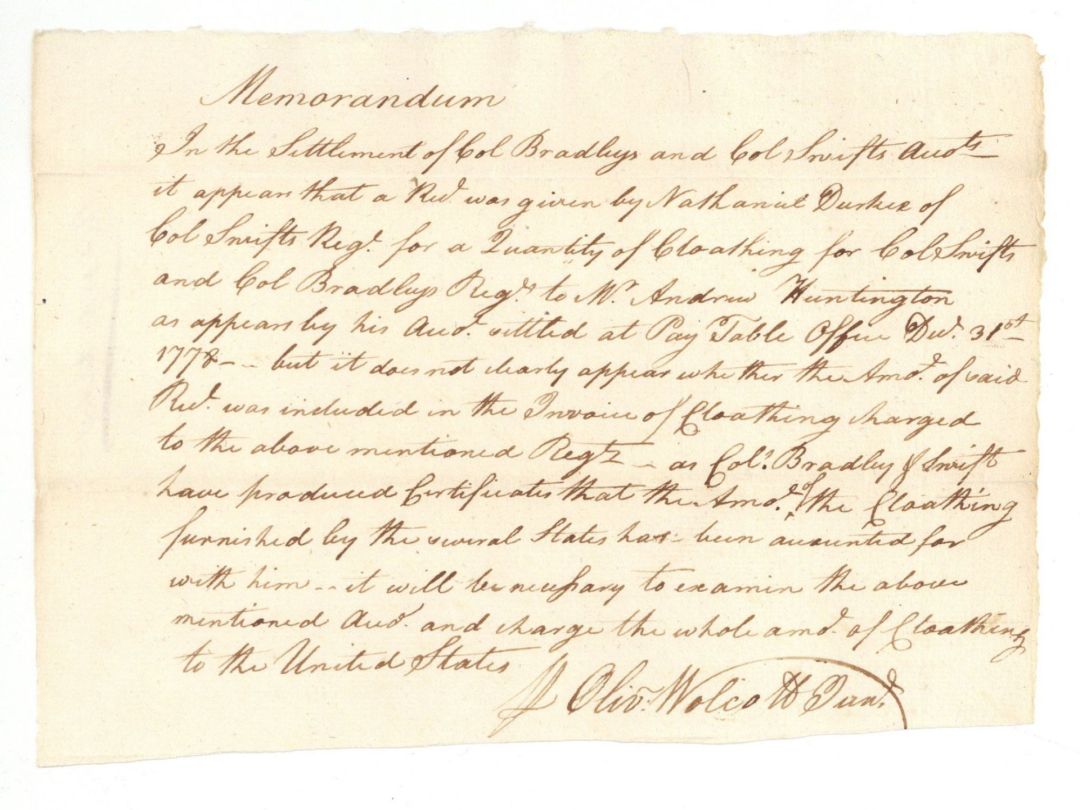 Memorandum
In the Settlement of Col Bradleys and Col Swifts Accts
it appears that a Recd. was given by Nathaniel Durkee of
Col Swifts Regt. for a Quantity of Cloathing for Col Swifts
and Col Bradleys Regts to Mr Andrew Huntington
as appears by his Acco. settled at Pay Table Office Dec. 31st
1778 -- but it does not clearly appear whether the Amo. of said
Recd. was included in the Invoice of Cloathing charged
to the above mentioned Regts - as Cols. Bradley & Swift
have produced Certificates that the Amo. of the Cloathing
furnished by the several States has been accounted for
with him -- it will be necessary to examin the above
mentioned Acco. and charge the whole amo. of Cloathing
to the United States
Olivr. Wolcott Junr.